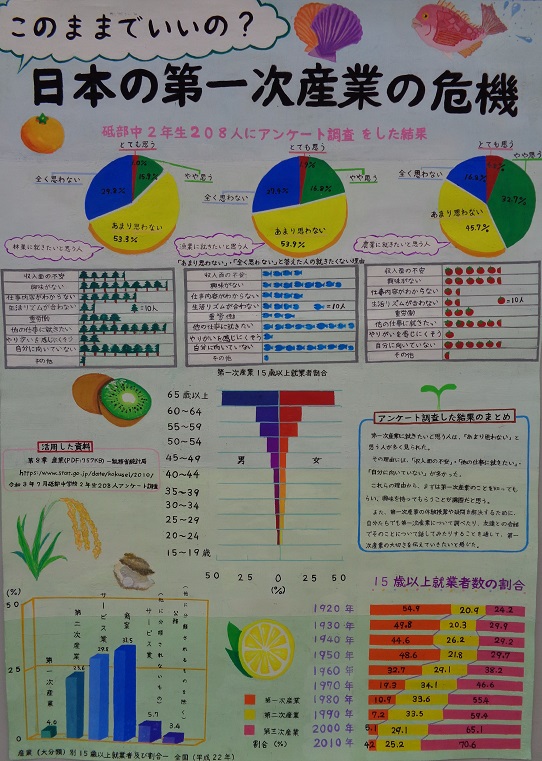 このままでいいの？
日本の第一次産業の危機
砥部中2年生208人にアンケート調査をした結果
とても思う
やや思う
全く思わない
あまり思わない
53.3%
林業に就きたいと思う人
とても思う
やや思う
全く思わない
あまり思わない
53.9%
漁業に就きたいと思う人
とても思う
やや思う
32.7%
全く思わない
あまり思わない
45.7%
農業に就きたいと思う人
「あまり思わない」・「全く思わない」と答えた人の就きたくない理由
収入面の不安
興味がない
仕事内容がわからない
生活リズムが合わない
重労働
他の仕事に就きたい
やりがいを感じにくそう
自分に向いていない
その他
=10人
収入面の不安
興味がない
仕事内容がわからない
生活リズムが合わない
重労働
他の仕事に就きたい
やりがいを感じにくそう
自分に向いていない
その他
=10人
収入面の不安
興味がない
仕事内容がわからない
生活リズムが合わない
重労働
他の仕事に就きたい
やりがいを感じにくそう
自分に向いていない
その他
=10人
第一次産業15歳以上就業者割合
65歳以上
60〜64
55〜59
50〜54
45〜49
40〜44
35〜39
30〜34
25〜29
20〜24
15〜19歳
男
女
50 25 0 25 50
(%)
活用した資料
第8章 産業(PDF:757KB)-総務省統計局
https://www.stat.go.jp/data/kokusei/2010/
令和3年7月砥部中学校2年生208人アンケート調査
アンケート調査した結果のまとめ
第一次産業に就きたいと思う人は、「あまり思わない」と
思う人が多く見られた。
その理由には、「収入面の不安」・「他の仕事に就きたい」・
「自分に向いていない」が多かった。
これらの理由から、まずは第一次産業のことを知っても
らい、興味を持ってもらうことが課題だと思う。
また、第一次産業の体験授業や疑問を解決するために、
自分たちでも第一次産業について調べたり、友達との会話
でそのことについて話してみたりすることを通して、第一
次産業の大切さを伝えていきたいと感じた。
(%)
50
25
0
第一次産業
4.0
第二次産業
23.6
サービス業
29.8
商業
31.5
サービス業(他に分類されないもの)
5.7
公務(他に分類されるものを除く)
3.4
産業(大分類)別15歳以上就業者及び割合ー全国(平成22年)
15歳以上就業者数の割合
1920年 54.9 20.9 24.2
1930年 49.8 20.3 29.9
1940年 44.6 26.2 29.2
1950年 48.6 21.8 29.7
1960年 32.7 29.1 38.2
1970年 19.3 34.1 46.6
1980年 10.9 33.6 55.4
1990年 7.2 33.5 59.4
2000年 5.1 29.1 65.1
2010年 4.2 25.2 70.6
第一次産業
第二次産業
第三次産業
割合(%)